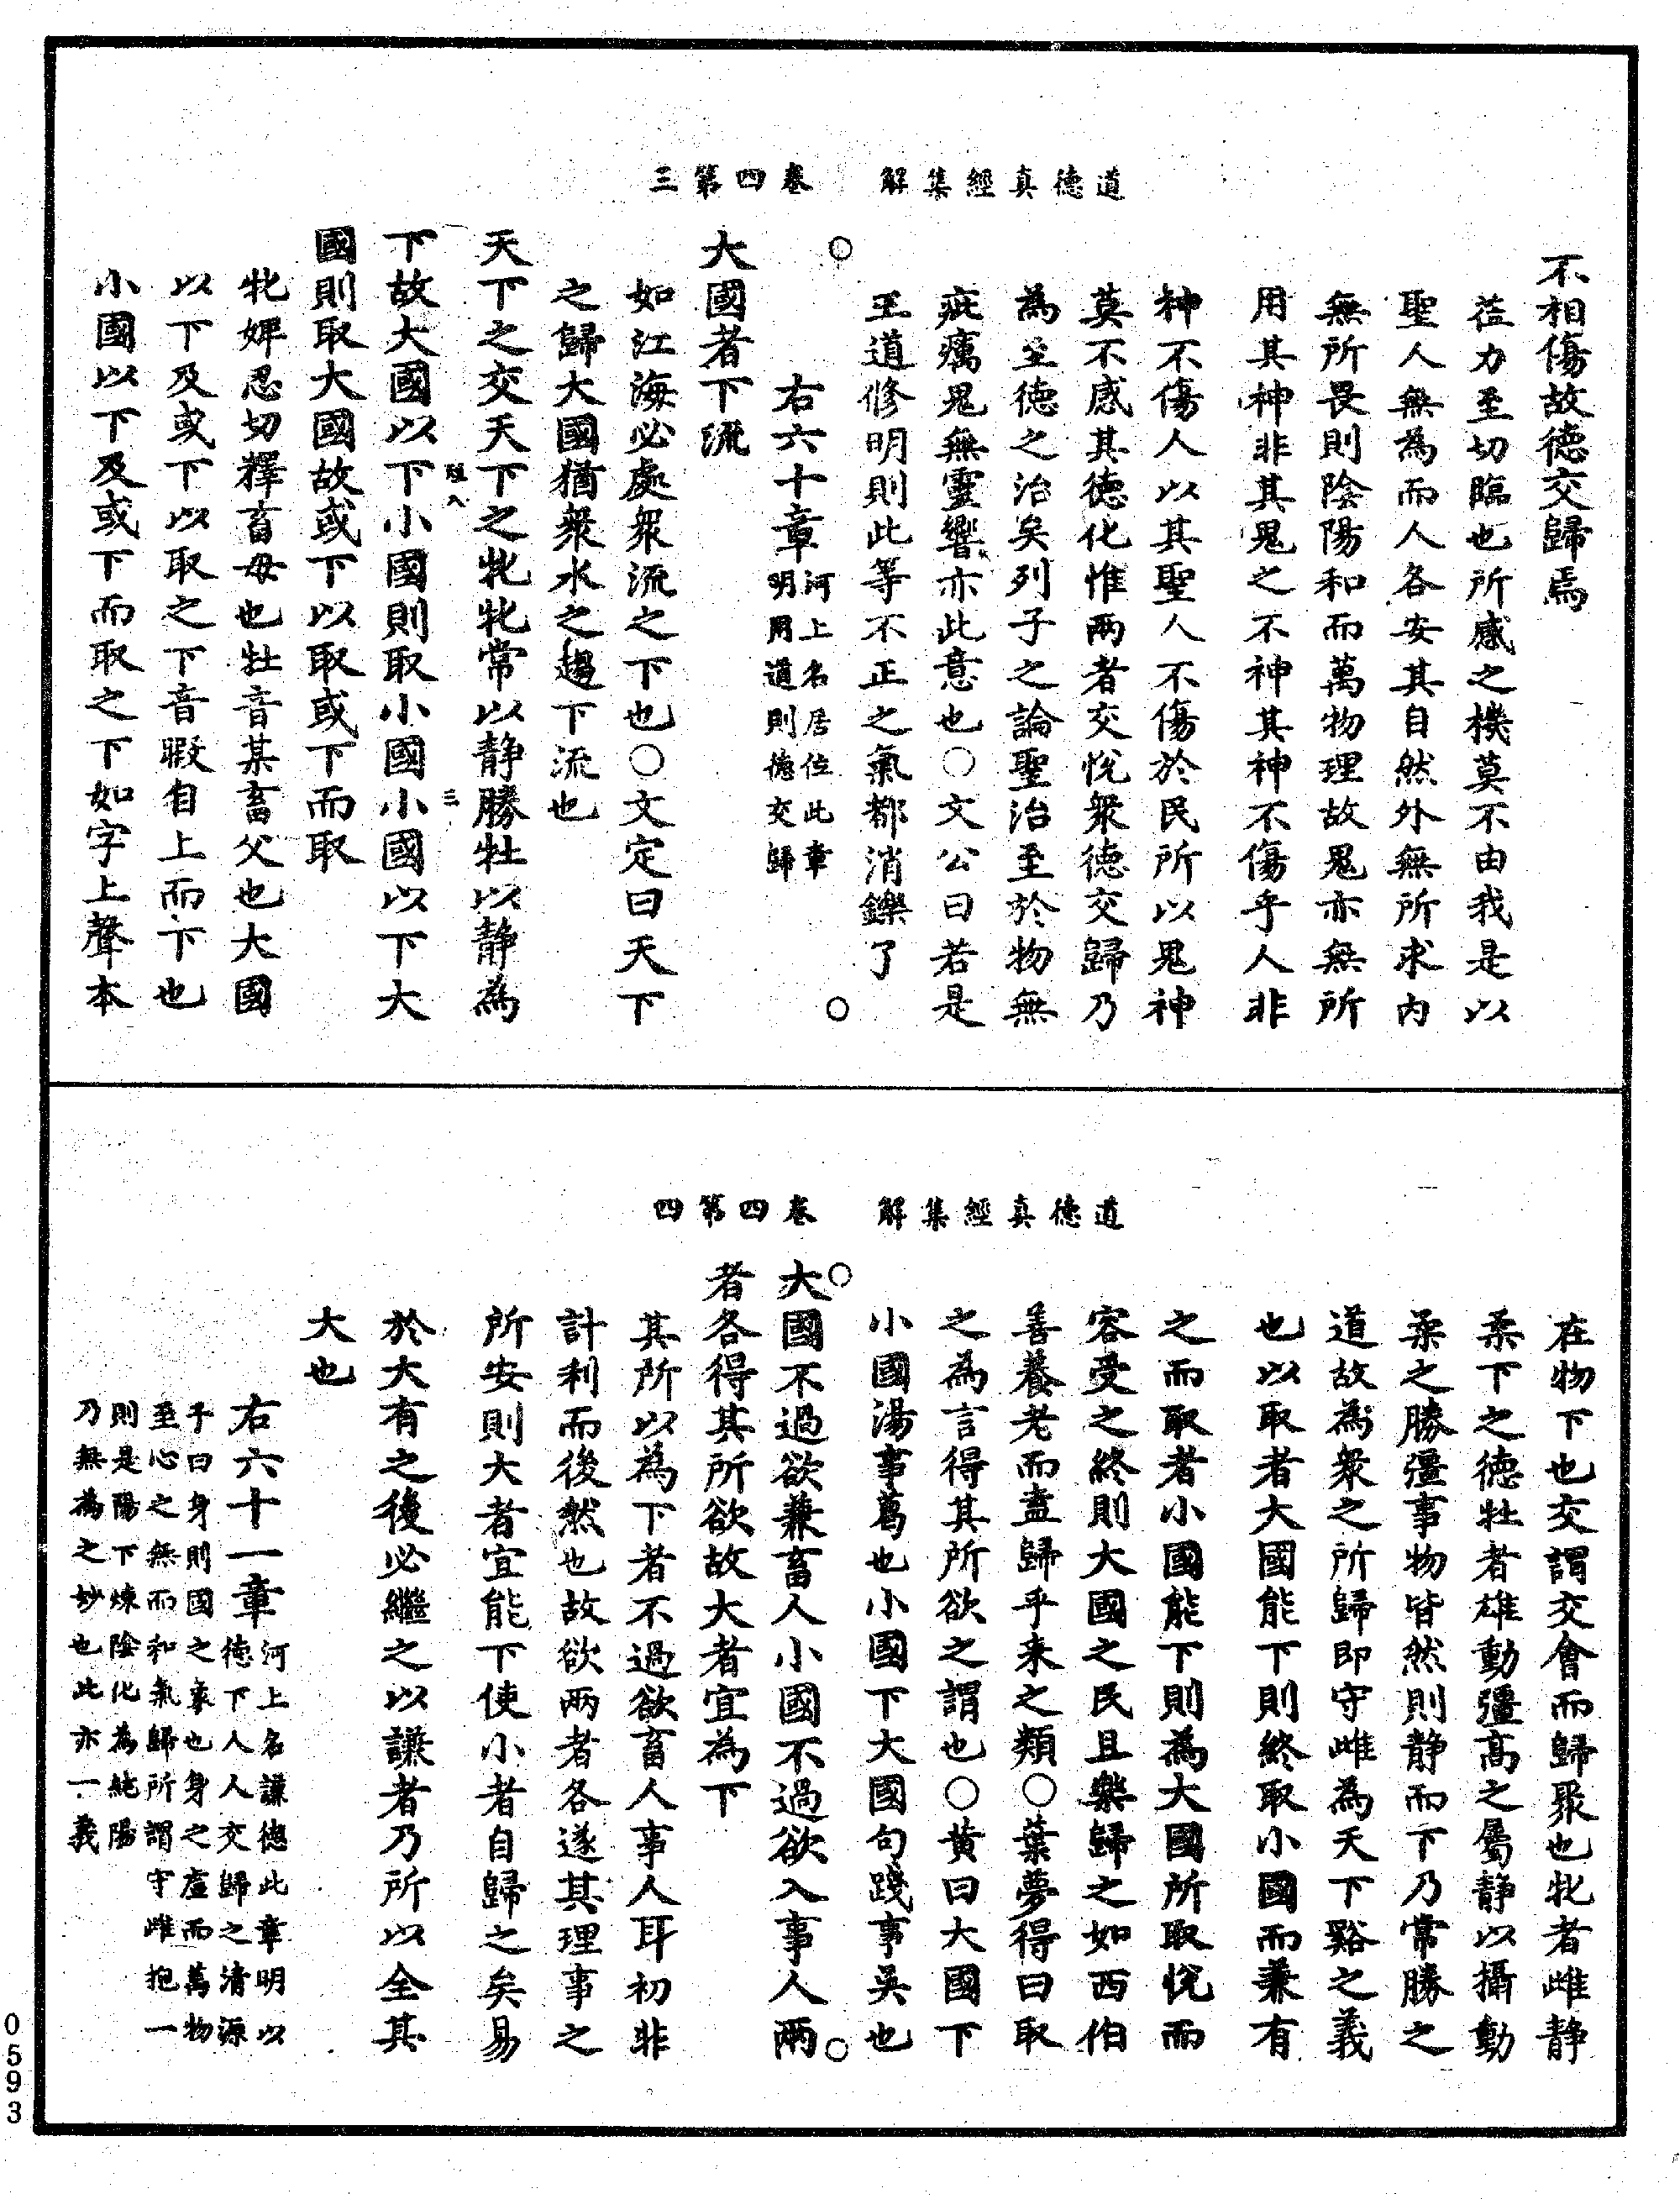 道德真經集解　卷四第三
不相傷故德交歸焉
莅力至切臨也所感之機莫不由我是以
聖人無為而人各安其自然外無所求內
無所畏則陰陽和而萬物理故鬼亦無所
用其神非其鬼之不神其神不傷乎人非
神不傷人以其聖人不傷於民所以鬼神
莫不感其德化惟兩者交悅眾德交歸乃
為至德之治矣列子之論聖治至於物無
疵癘鬼無靈響亦此意也○文公曰若是
王道修明則此等不正之氣都消鑠了
○右六十章河上名居位此章
明用道則德交歸○
大國者下流
如江海必處眾流之下也○文定曰天下
之歸大國猶眾水之趨下流也
天下之交天下之牝牝常以静勝牡以静為
下故大國以下小國則取小國小國以下大
國則取大國故或下以取或下而取
牝婢忍切釋畜母也牡音某畜父也大國
以下及或下以取之下音暇自上而下也
小國以下及或下而取之下如字上聲本
道德真經集解　卷四第四
在物下也交謂交會而歸聚也牝者雌静
柔下之德牡者雄動彊高之屬静以攝動
柔之勝彊事物皆然則静而下乃常勝之
道故為眾之所歸即守雌為天下谿之義
也以取者大國能下則終取小國而兼有
之而取者小國能下則為大國所取悅而
容受之終則大國之民且樂歸之如西伯
善養老而盍歸乎来之類○葉夢得曰取
之為言得其所欲之謂也○黄曰大國下
小國湯事葛也小國下大國句踐事吳也
○大國不過欲兼畜人小國不過欲入事人兩○
者各得其所欲故大者宜為下
其所以為下者不過欲畜人事人耳初非
計利而後然也故欲兩者各遂其理事之
所安則大者宜能下使小者自歸之矣易
於大有之後必繼之以謙者乃所以全其
大也
右六十一章河上名謙德此章明以
德下人人交歸之清源
子曰身則國之象也身之虛而萬物
至心之無而和氣歸所謂守雌抱一
則是陽下煉陰化為純陽
乃無為之妙也此亦一義
0593